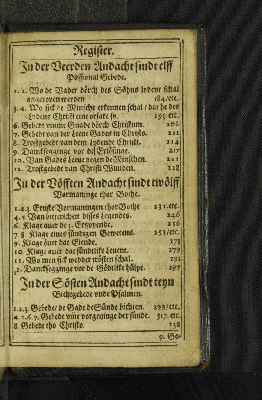 Register.
In der Veerden Andacht sindt elff
Passional Gebede.
1. 2. Wo de Vader dörch des Söhns lydent schal
angeropen werden 184/etc.
3. 4. Wo sick de Minsche erkennen schal / dat he des
Lydens Christi eine orsake sy. 193.etc.
6. Gebedt umme Gnade dörch Christum. 206
7. Gebedt van der Leeue Gades in Christo. 211
8. Trostgebedt van dem Lydende Christi. 214
9. Dancksegginge vor de Erlösinge. 217
10. Van Gades Leeue tegen de Minschen. 221
11. Trostgebedt van Christi Wunden. 228
In der Vöfften Andacht sindt twölff
Vormaninge thor Bothe.
1.2.3. Ernste Vormaningen thor Bothe 231.etc.
4. 5. Van beterischen disses Leuendes. 246
6. Klage auer de Ertzoyende. 256
7. 8 Klage eines sündigen Gewetens. 253/etc.
9. Klage auer dat Elende. 273
10. Klage auer dat sündtlike Leuent. 278
11. Wo men sick wedder trösten schal. 291
12. Dancksegginge vor de Gödtlike hülpe. 297
In der Sösten Andacht sindt teyn
Bichtgebede unde Psalmen.
1.2.3. Gebede / de Gade de Sünde bichten. 299/etc.
4. 5.6.7. Gebede vmme vorgeuinge der sünde. 317. etc.
8. Gebedt tho Christo. 338
9. Ge-